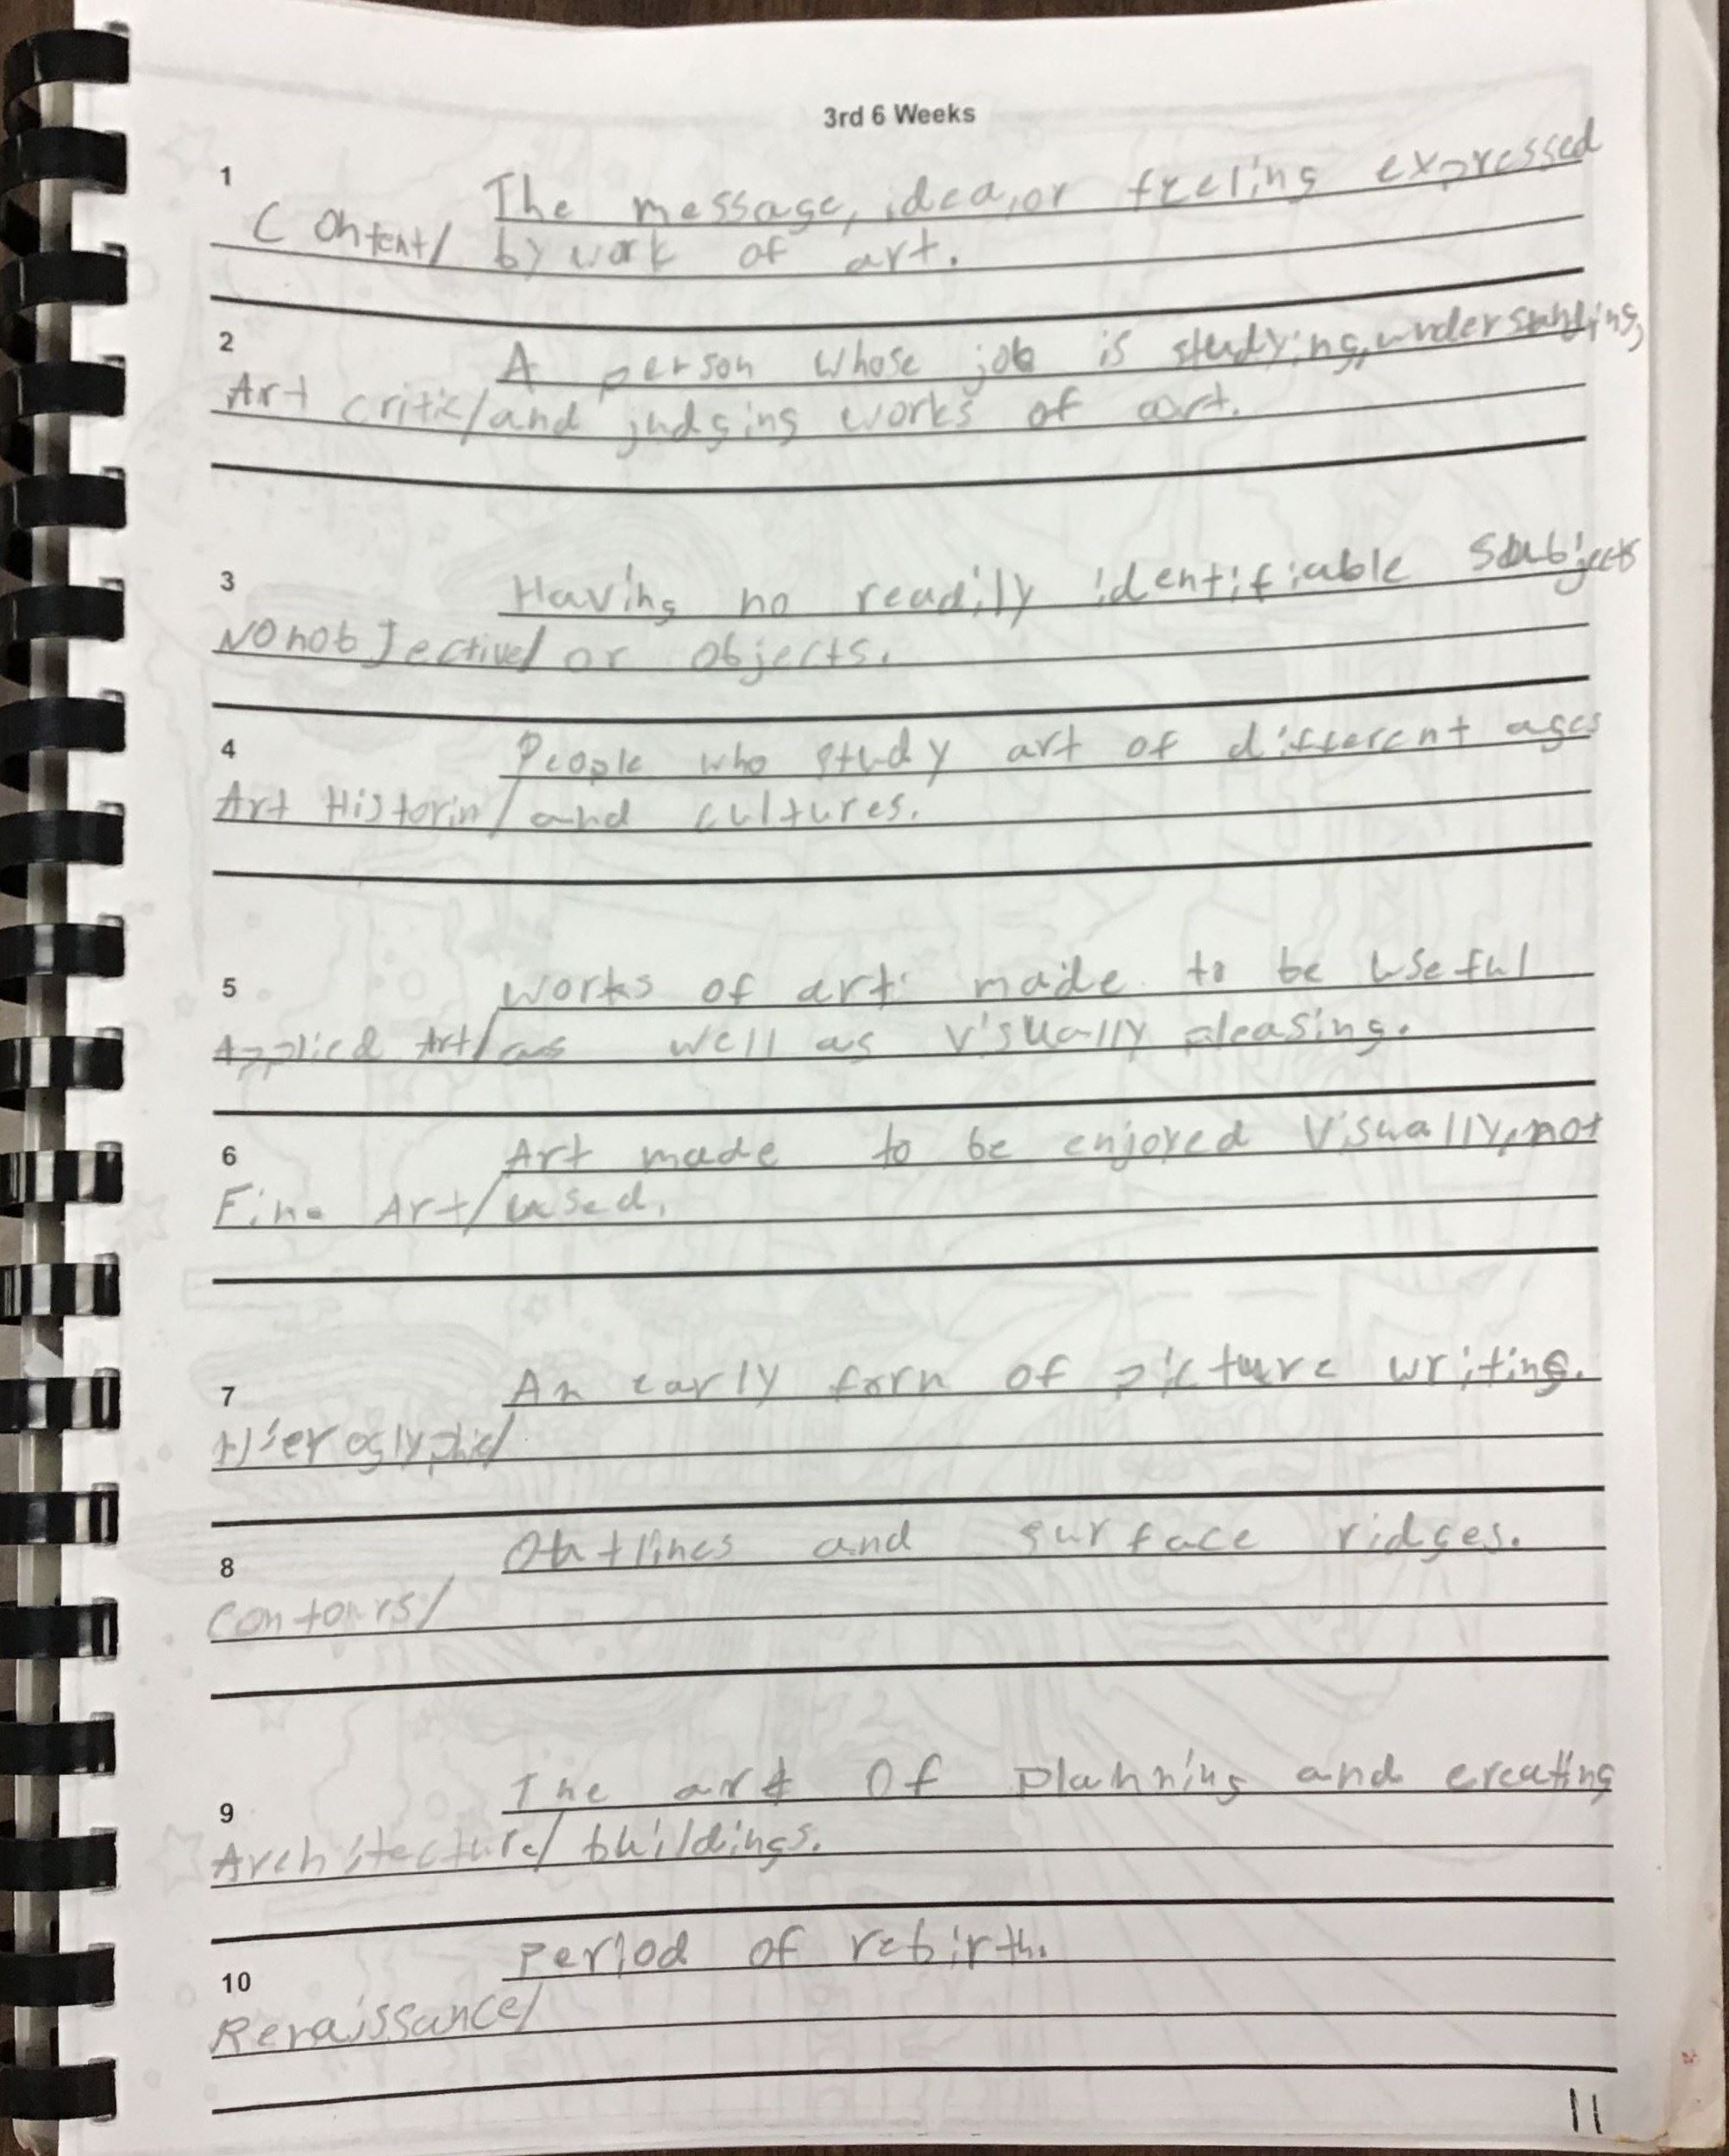 3rd 6 Weeks
1
The message, idea, or feeling expressed
Content/ by work of art.
2
A person whose job is studying, understanding,
Art critic/ and judging works of art.
3
Having no readily identifiable subjects
Nonobjective/ or objects.
4
People who study art of different ages
Art Historin/ and cultures.
5
works of art made to be useful
Applied Art/ as well as visually pleasing.
6
Art made to be enjoyed visually, not
Fine Art/ used.
7
An early form of picture writing.
Hieroglyphic/
8
Outlines and surface ridges.
Contours/
9
The art of planning and creating
Architecture/ buildings.
10
Period of rebirth.
Renaissance/
11